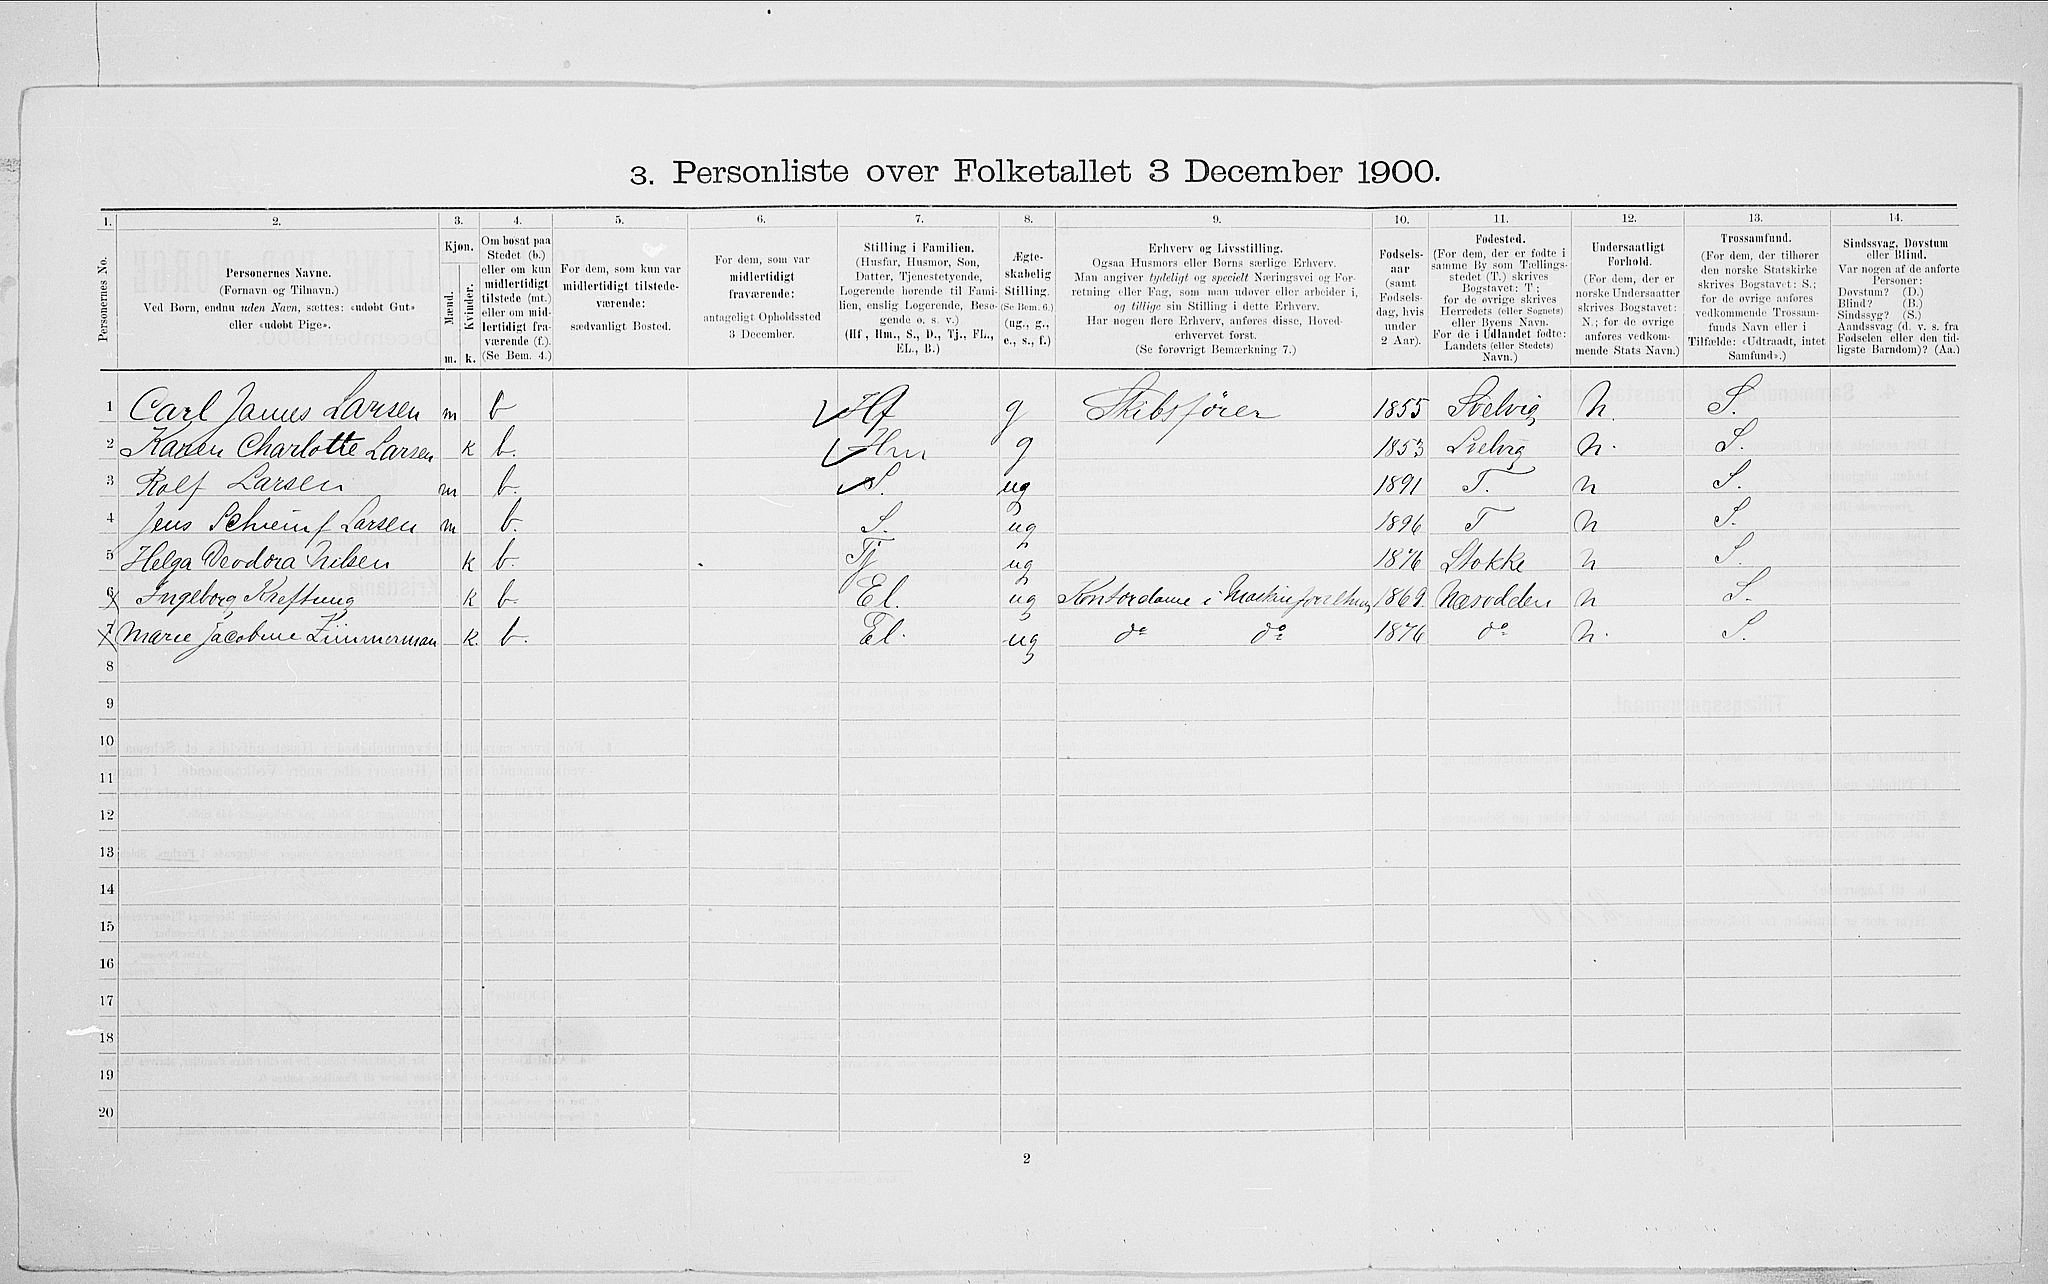 3. Personliste over Folketallet 3 December 1900.
1. 2. 3. 4. 5. 6. 7. 8. 9. 10. 11. 12. 13. 14.
Personernes No.
Personernes Navne.
(Fornavn og Tilnavn.)
Ved Børn, endnu uden Navn, sættes: «udøbt Gut»
eller «udøbt Pige».
Kjøn.
Mænd.
Kvinder.
m. k.
Om bosat paa
Stedet (b.)
eller om kun
midlertidigt
tilstede (mt.)
eller om mid-
lertidigt fra-
værende (f.).
(Se Bem. 4.)
For dem, som kun var
midlertidigt tilstede-
værende:
sædvanligt Bosted.
For dem, som var
midlertidigt
fraværende:
antageligt Opholdssted
3 December.
Stilling i Familien.
(Husfar, Husmor, Søn,
Datter, Tjenestetyende,
Logerende hørende til Fami-
lien, enslig Logerende, Besø-
gende o. s. v.)
(Hf, Hm., S., D., Tj., FL.,
EL., B.)
Ægte-
skabelig
Stilling.
(Se Bem. 6.)
(ug., g.,
e., s., f.)
Erhverv og Livsstilling.
Ogsaa Husmors eller Børns særlige Erhverv.
Man angiver tydeligt og specielt Næringsvei og For-
retning eller Fag, som man udøver eller arbeider i,
og tillige sin Stilling i dette Erhverv.
Har nogen flere Erhverv, anføres disse, Hoved-
erhvervet først.
(Se forøvrigt Bemærkning 7.)
Fødsels-
aar
(samt
Fødsels-
dag, hvis
under
2 Aar).
Fødested.
(For dem, der er fødte i
samme By som Tællings-
stedet (T.) skrives
Bogstavet: T;
for de øvrige skrives
Herredets (eller Sognets)
eller Byens Navn.
For de i Udlandet fødte:
Landets (eller Stedets)
Navn.)
Undersaatligt
Forhold.
(For dem, der er
norske Undersaatter
skrives Bogstavet:
N.; for de øvrige
anføres vedkom-
mende Stats Navn.)
Trossamfund.
(For dem, der tilhører
den norske Statskirke
skrives Bogstavet: S.;
for de øvrige anføres
vedkommende Trossam-
funds Navn eller i
Tilfælde: «Udtraadt, intet
Samfund».)
Sindssvag, Døvstum
eller Blind.
Var nogen af de anførte
Personer:
Døvstum? (D.)
Blind? (B.)
Sindssyg? (S.)
Aandssvag (d. v. s. fra
Fødselen eller den tid-
ligste Barndom)? (Aa.)
1 Carl Janus Larsen m b Hf g Skibsfører 1855 Svelvig N. S.
2 Karen Charlotte Larsen k b. Hm g 1853 Svelvig n. S.
3 Rolf Larsen m b. S. ug 1891 T. n S.
4 Jens Larsen m b. S. ug 1896 T n S.
5 Helga Deodora Nilsen k b. Tj ug 1876 Stokke n S.
6 Ingeborg k b. El. ug Kontordame i 1869 Næsodden n S.
7 Marie Jacobine Zimmerman k. b. El. ug do do 1876 do n. S.
8
9
10
11
12
13
14
15
16
17
18
19
20
2